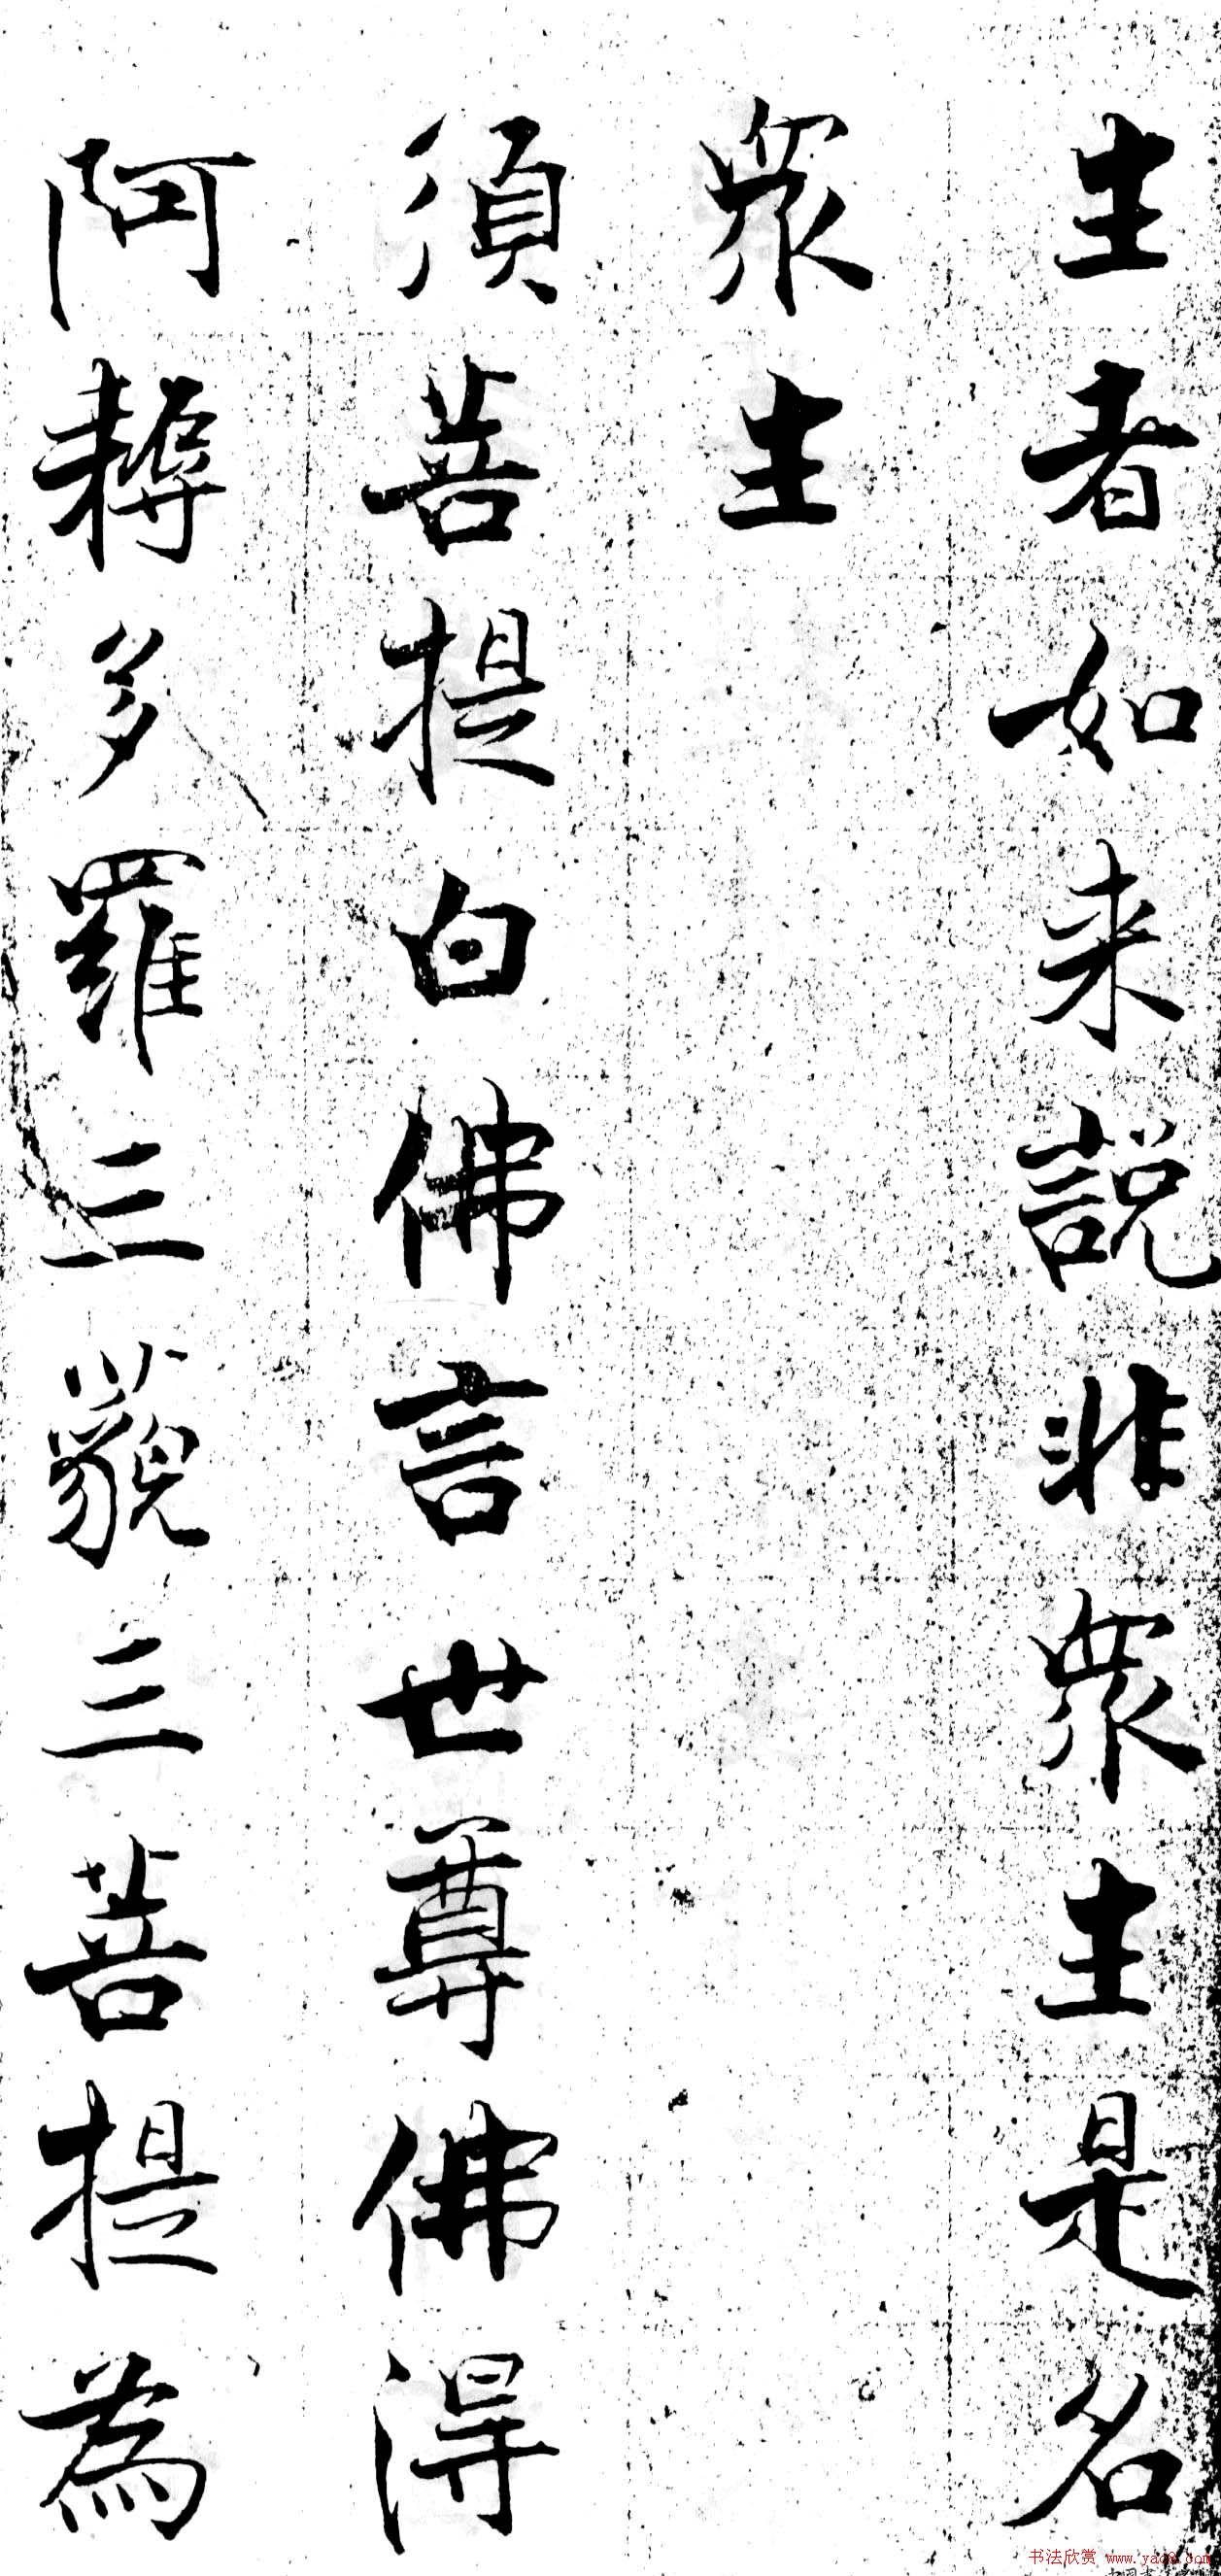 生者如来説非眾生是名
眾生
須菩提白佛言世尊佛得
阿耨多羅三藐三菩提為
书法欣赏 www.yac8.com